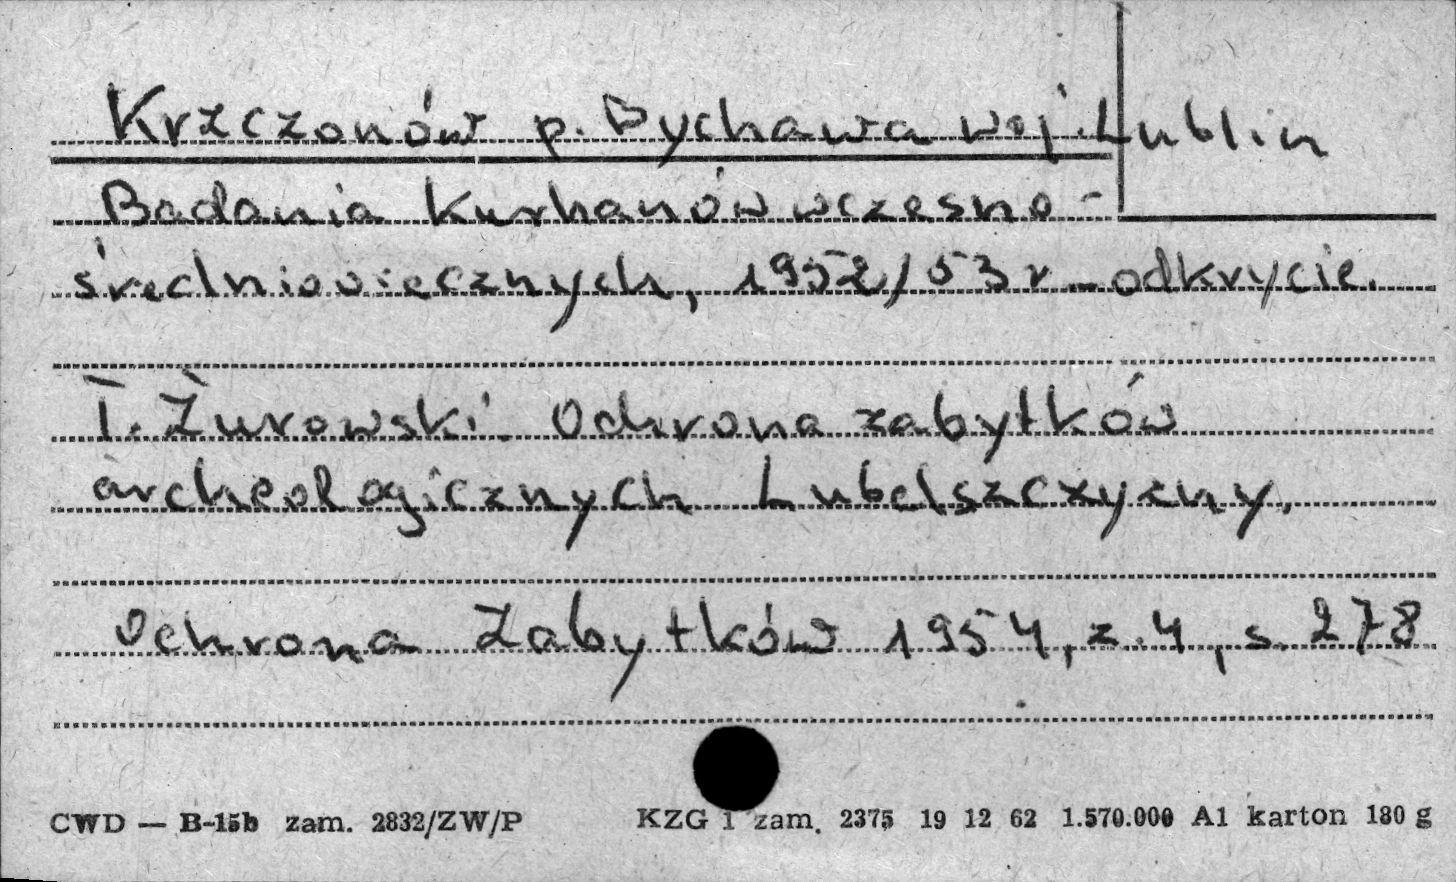 Krzczonów p. Bychawa woj. Lublin
Badania kurhanów wczesno-
średniowiecznych, 1952/53 r – odkrycie.
T. Żurowski. Ochrona zabytków
archeologicznych Lubelszczyzny,
Ochrona Zabytków 1954, z.4, s. 278
CWD — B-15b zam. 2832/ZW/P KZG 1 zam. 2375 19 12 62 1.570.000 A1 karton 180 g